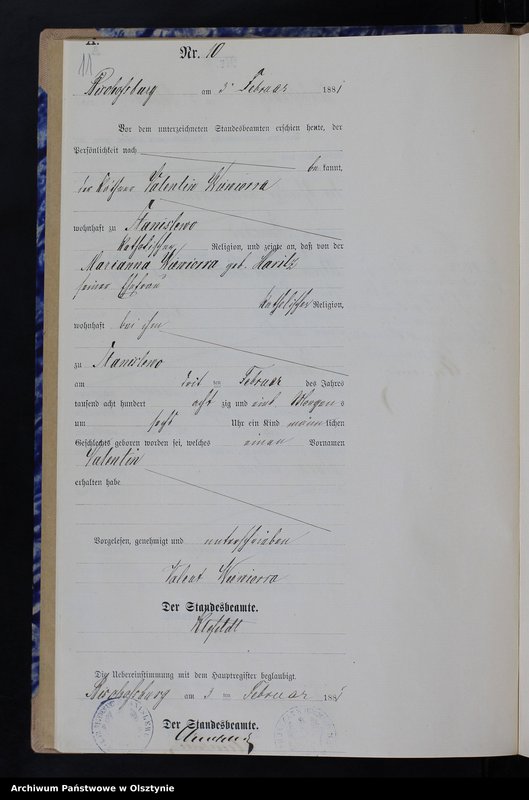 A.
11
Nr. 10
Bischofsburg am 3. Februar 1881
Vor dem unterzeichneten Standesbeamten erschien heute, der
Persönlichkeit nach
be kannt,
der Käthner Valentin
wohnhaft zu Stanislewo
katholischer Religion, und zeigte an, daß von der
Marianna geb.
seiner Ehefrau
katholischer Religion,
wohnhaft bei ihm
zu Stanislewo
am ten Februar des Jahres
tausend acht hundert acht zig und eins Morgen s
um sechs Uhr ein Kind männ lichen
Geschlechts geboren worden sei, welches einen Vornamen
Valentin
erhalten habe.
Vorgelesen, genehmigt und unterschrieben
Der Standesbeamte.
Die Uebereinstimmung mit dem Hauptregister beglaubigt.
Bischofsburg am 3 ten Februar 1881
Der Standesbeamte.
Archiwum Państwowe w Olsztynie